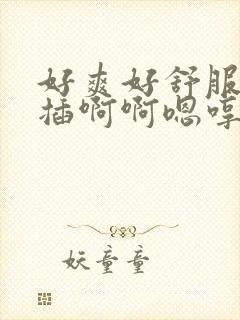 好爽好舒服
插啊啊嗯哼
妖童童